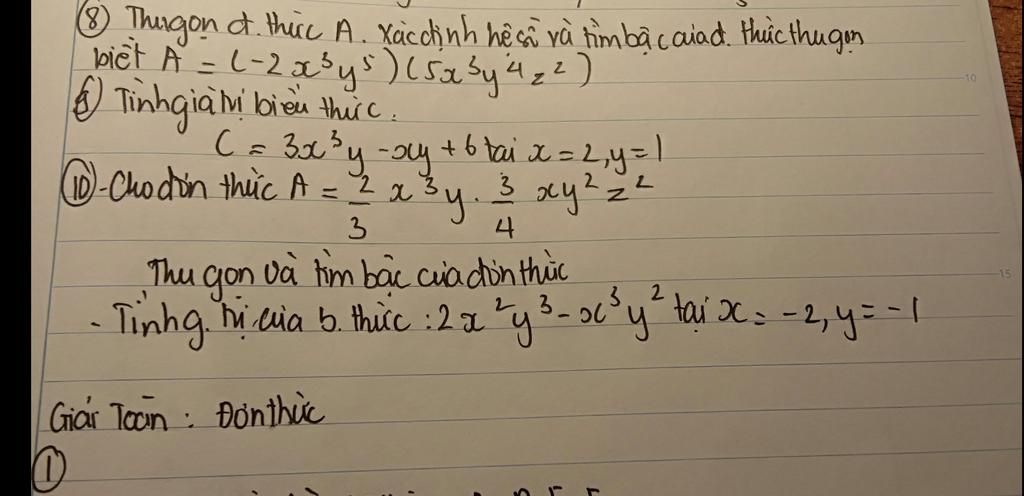 ⑧ Thu gọn đ. thức A. Xác định hệ số và tìm bậc của đ. thức thu gọn
biết A = (-2x³y⁵)(5x³y⁴z²)
Tính giá trị biểu thức.
C = 3x³y - xy + 6 tại x = 2, y = 1
⑩ - Cho đơn thức A = 2/3 x³y . 3/4 xy²z²
Thu gọn và tìm bậc của đơn thức
- Tính g. trị của b. thức : 2x²y³ - x³y² tại x = -2, y = -1
Giải Toán : Đơn thức
①